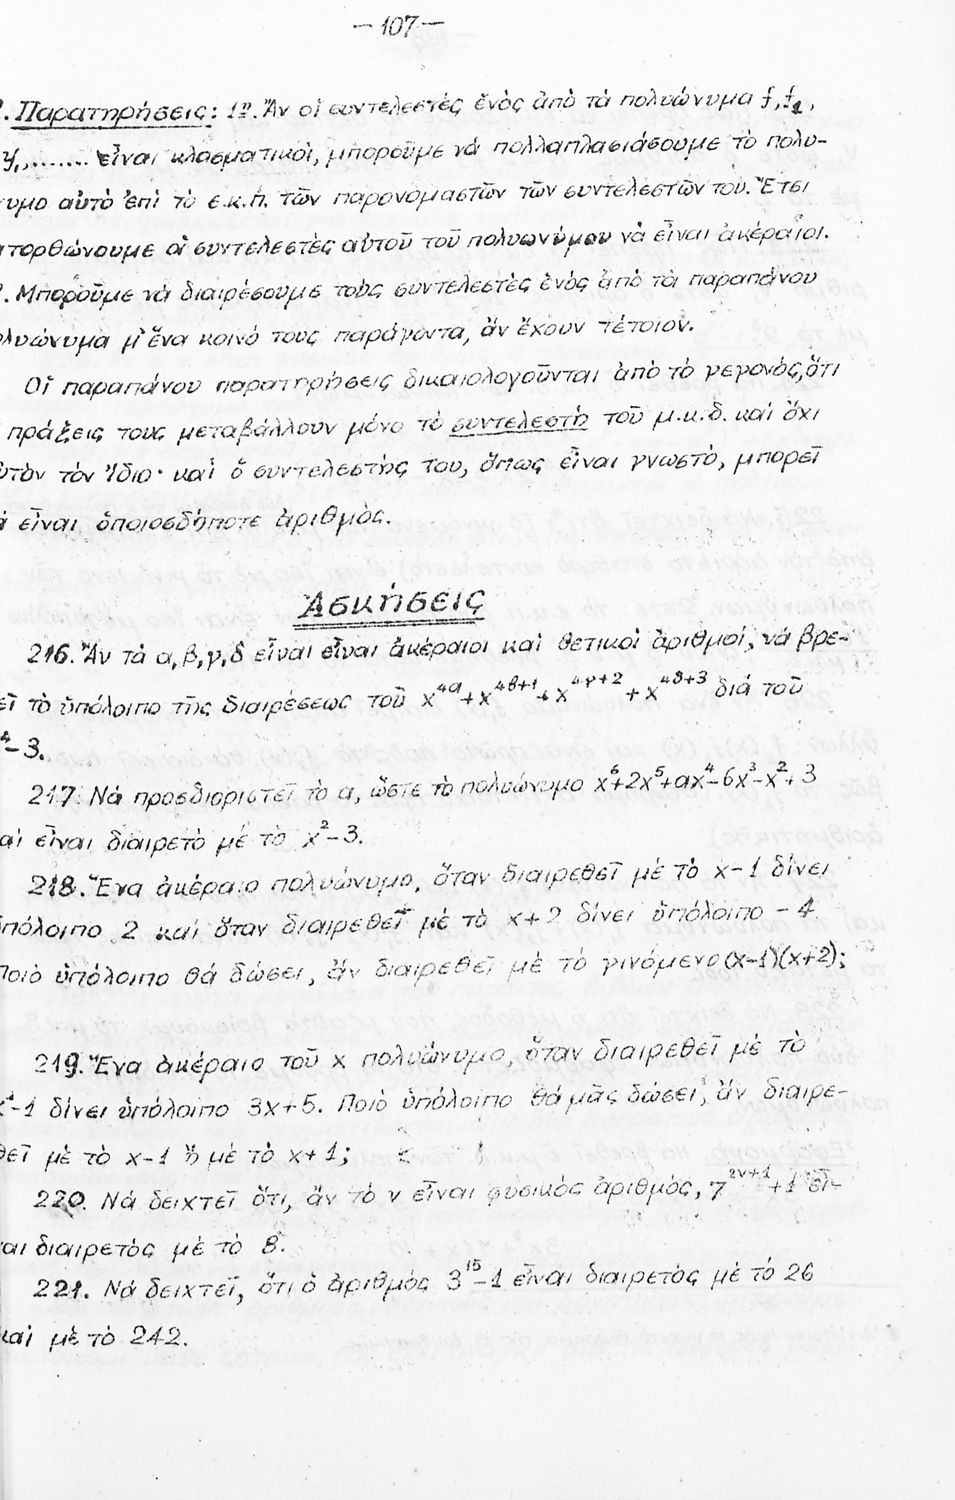 — 107 —
. Παρατηρήσεις: 1η. Ἄν οἱ συντελεστές ἑνὸς ἀπὸ τὰ πολυώνυμα f, f₁,
......... εἶναι κλασματικοί, μποροῦμε νὰ πολλαπλασιάσουμε τὸ πολυ-
υμο αὐτὸ ἐπὶ τὸ ε.κ.π. τῶν παρονομαστῶν τῶν συντελεστῶν του. Ἔτσι
ατορθώνουμε οἱ συντελεστὲς αὐτοῦ τοῦ πολυωνύμου νὰ εἶναι ἀκέραιοι.
. Μποροῦμε νὰ διαιρέσουμε τοὺς συντελεστὲς ἑνὸς ἀπὸ τὰ παραπάνου
ολυώνυμα μ' ἕνα κοινό τους παράγοντα, ἄν ἔχουν τέτοιον.
Οἱ παραπάνου παρατηρήσεις δικαιολογοῦνται ἀπὸ τὸ γεγονὸς, ὅτι
πράξεις τους μεταβάλλουν μόνο τὸ συντελεστὴ τοῦ μ.κ.δ. καὶ ὄχι
ὐτὸν τὸν ἴδιο· καὶ ὁ συντελεστὴς του, ὅπως εἶναι γνωστὸ, μπορεῖ
ὰ εἶναι ὁποιοσδήποτε ἀριθμὸς.
Ἀσκήσεις
216. Ἄν τὰ α,β,γ,δ εἶναι εἶναι ἀκέραιοι καὶ θετικοὶ ἀριθμοί, νὰ βρε-
εῖ τὸ ὑπόλοιπο τῆς διαιρέσεως τοῦ x⁴ᵅ+x⁴ᵝ⁺¹+x⁴ᵞ⁺²+x⁴ᵟ⁺³ διὰ τοῦ
⁴-3.
217. Νὰ προσδιοριστεῖ τὸ α, ὥστε τὸ πολυώνυμο x⁶+2x⁵+αx⁴-6x³-x²+3
αὶ εἶναι διαιρετὸ μὲ τὸ x²-3.
218. Ἕνα ἀκέραιο πολυώνυμο, ὅταν διαιρεθεῖ μὲ τὸ x-1 δίνει
πόλοιπο 2 καὶ ὅταν διαιρεθεῖ μὲ τὸ x+2 δίνει ὑπόλοιπο -4.
Ποιὸ ὑπόλοιπο θὰ δώσει, ἄν διαιρεθεῖ μὲ τὸ γινόμενο (x-1)(x+2);
219. Ἕνα ἀκέραιο τοῦ x πολυώνυμο, ὅταν διαιρεθεῖ μὲ τὸ
x²-1 δίνει ὑπόλοιπο 3x+5. Ποιὸ ὑπόλοιπο θὰ μᾶς δώσει, ἄν διαιρε-
θεῖ μὲ τὸ x-1 ἢ μὲ τὸ x+1;
220. Νὰ δειχτεῖ ὅτι, ἄν τὸ ν εἶναι φυσικὸς ἀριθμὸς, 7²ᵛ⁺¹+1 εἶ-
ναι διαιρετὸς μὲ τὸ 8.
221. Νὰ δειχτεῖ, ὅτι ὁ ἀριθμὸς 3¹⁵-1 εἶναι διαιρετὸς μὲ τὸ 26
καὶ μὲ τὸ 242.